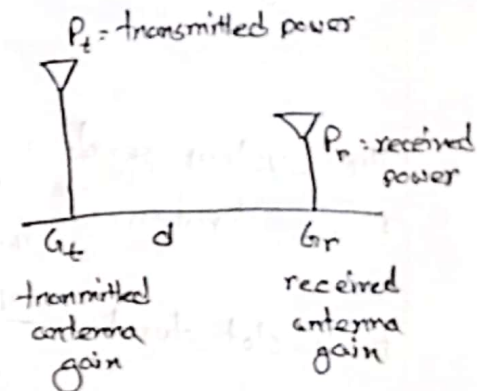 P_t = transmitted power
P_r = received
power
G_t d G_r
tranmitted
antenna
gain
received
antenna
gain